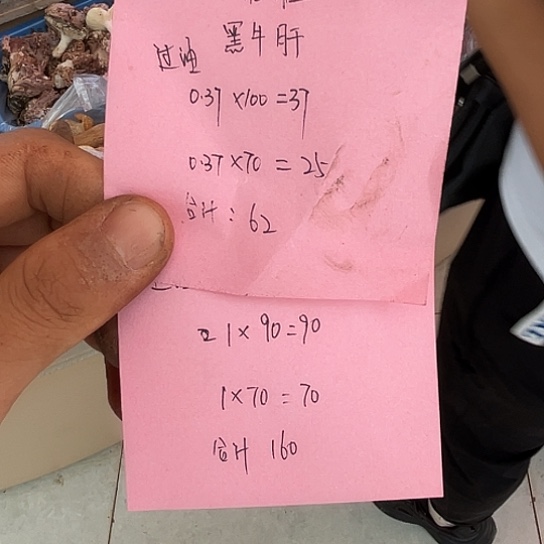 过油 黑牛肝
0.37×100=37
0.37×70=25
合计:62
1×90=90
1×70=70
合计 160